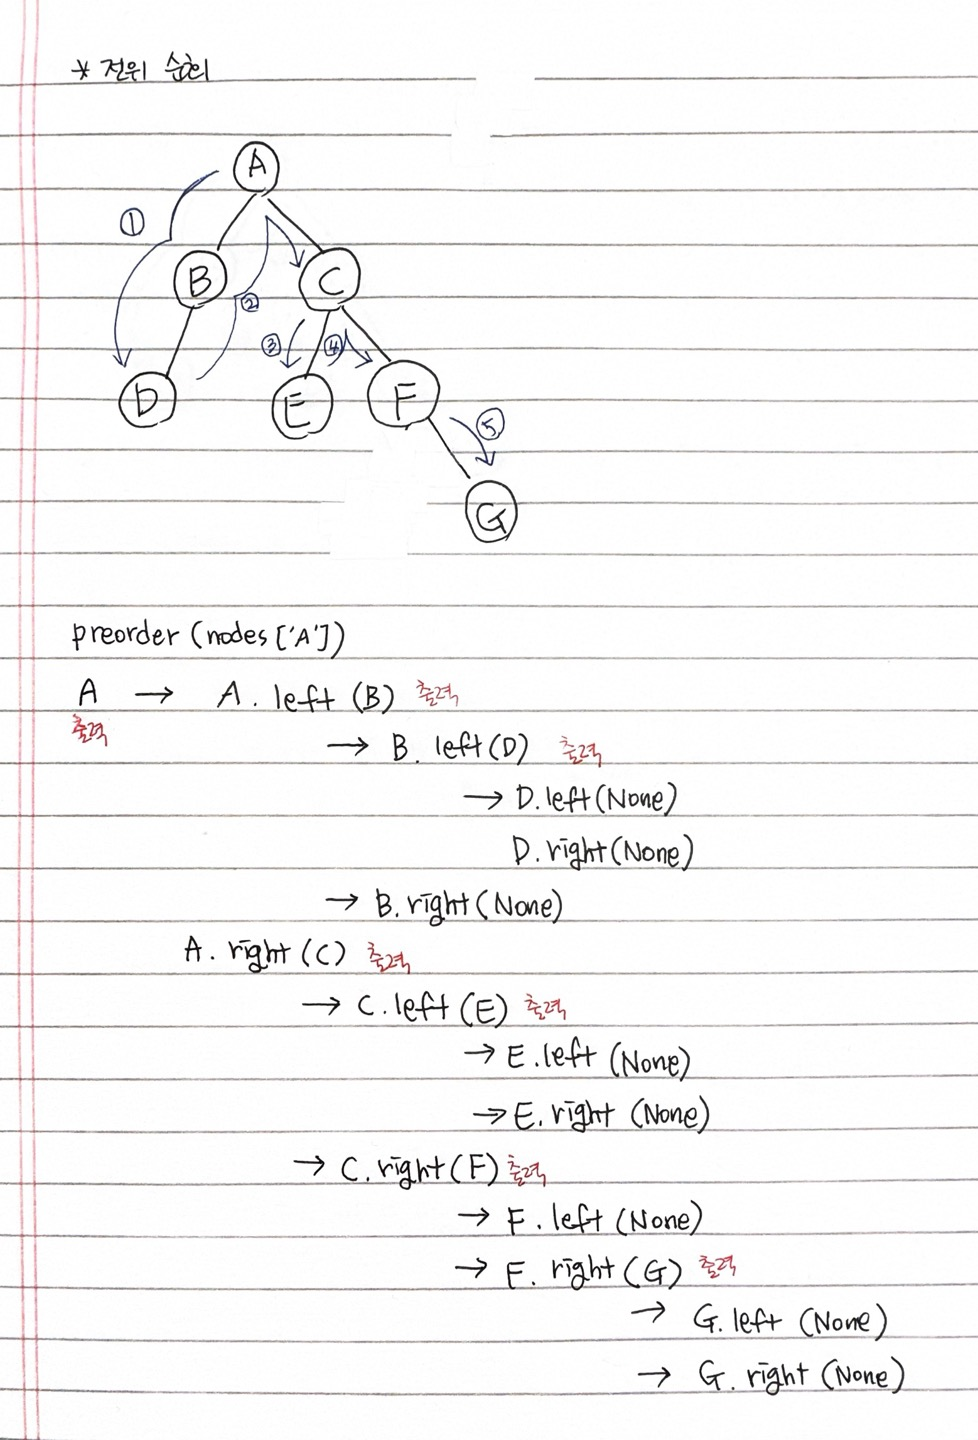 * 전위 순회
A
①
B
C
②
③
④
D
E
F
⑤
G
preorder (nodes ['A'])
A → A. left (B) 출력
출력
→ B. left (D) 출력
→ D.left (None)
D.right (None)
→ B.right (None)
A. right (C) 출력
→ C.left (E) 출력
→ E.left (None)
→ E.right (None)
→ C.right (F) 출력
→ F.left (None)
→ F. right (G) 출력
→ G.left (None)
→ G. right (None)